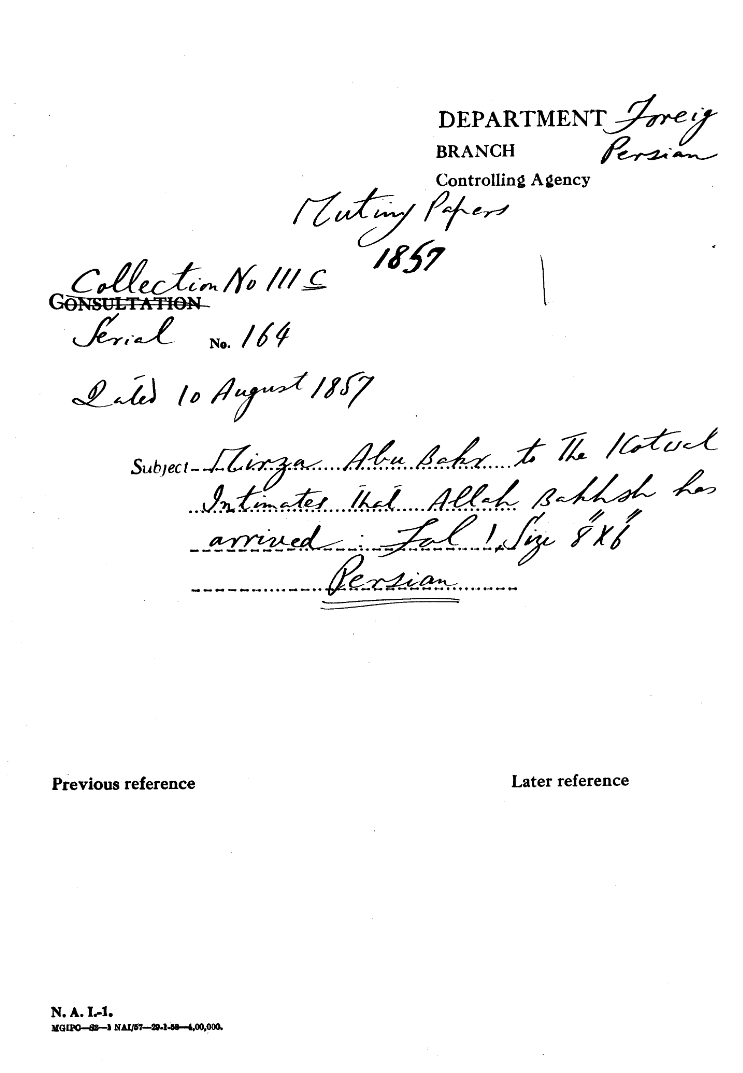 DEPARTMENT Foreig
BRANCH Persian
Controlling Agency
Mutiny Papers
1857
Collection No 111 C
CONSULTATION
Serial No. 164
Dated 10 August 1857
Subject- Mirza Abu Bakr to The Kotwal
Intimates that Allah Bakhsh has
arrived : Fol 1, Size 8"X6"
Persian
Previous reference Later reference
N. A. I.-1.
MGIPC—S2—1 NAI/57—29-1-58—4,00,000.